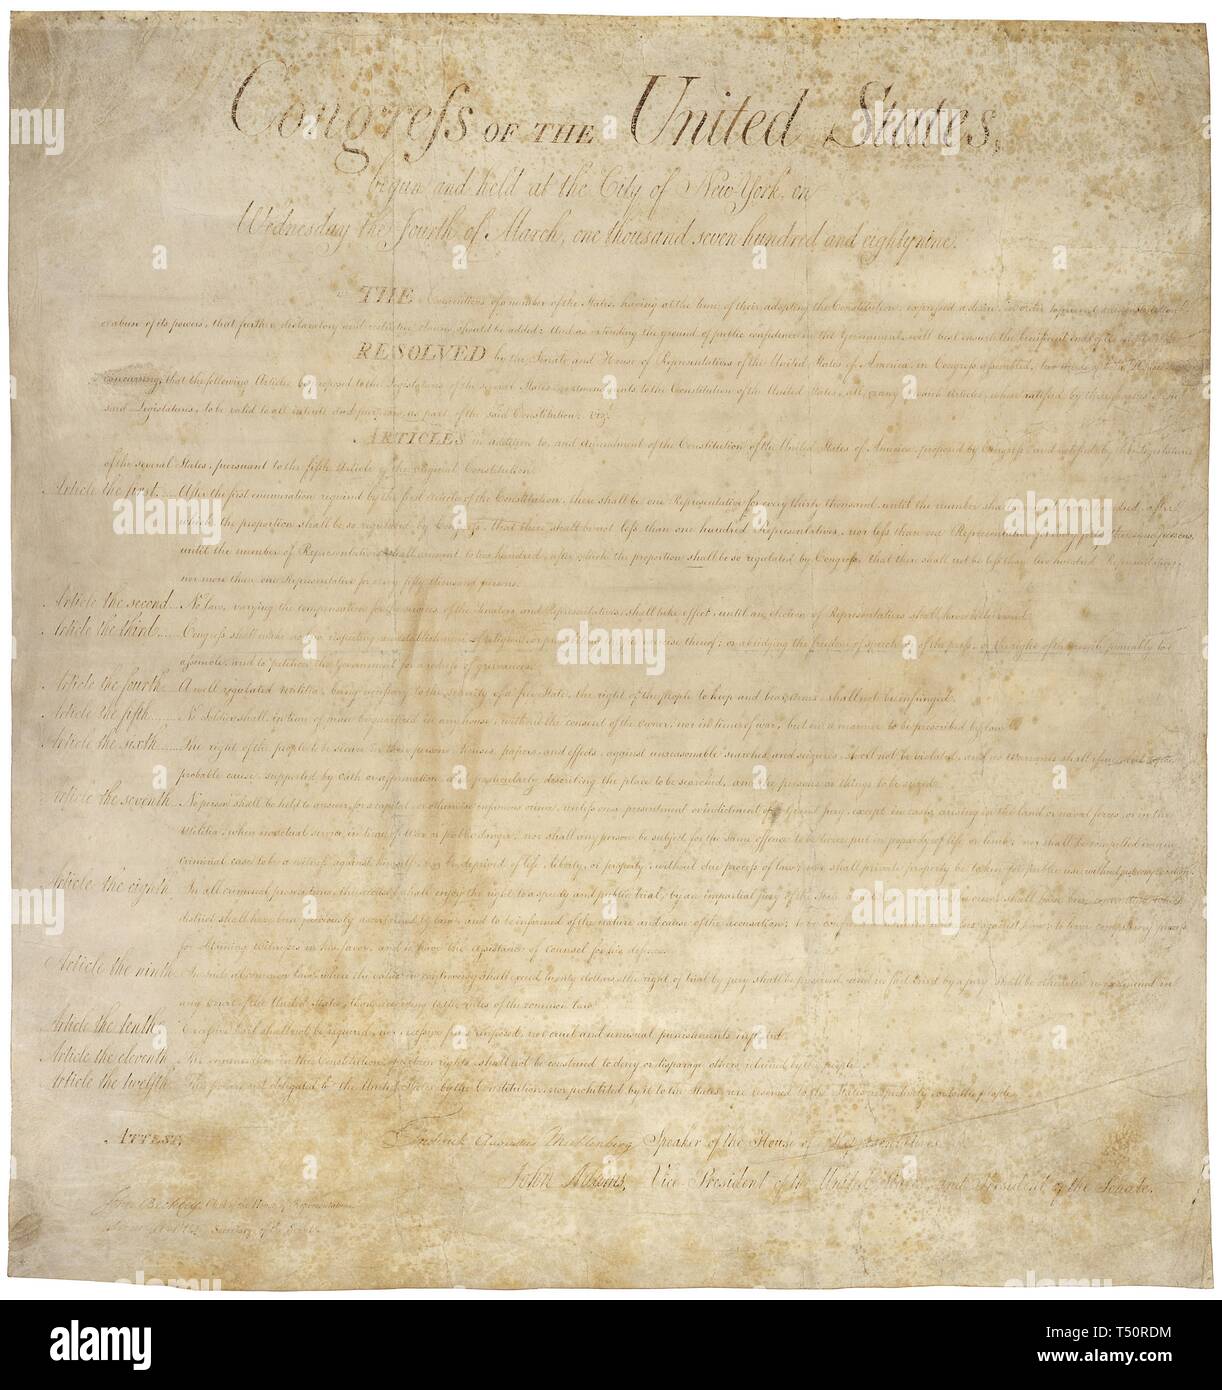 Congreſs OF THE United States,
begun and held at the City of New York, on
Wednesday the Fourth of March, one thousand seven hundred and eighty nine.
THE Conventions of a number of the States, having at the time of their adopting the Constitution, expressed a desire, in order to prevent misconstruction
or abuse of its powers, that further declaratory and restrictive clauses should be added: And as extending the ground of public confidence in the Government, will best ensure the beneficent ends of its institution
RESOLVED by the Senate and House of Representatives of the United States of America, in Congress assembled, two thirds of both Houses
concurring, that the following Articles be proposed to the Legislatures of the several States, as amendments to the Constitution of the United States, all, or any of which Articles, when ratified by three fourths of the
said Legislatures, to be valid to all intents and purposes, as part of the said Constitution; Viz.
ARTICLES in addition to, and Amendment of the Constitution of the United States of America, proposed by Congress, and ratified by the Legislatures
of the several States, pursuant to the fifth Article of the original Constitution.
Article the first.... After the first enumeration required by the first Article of the Constitution, there shall be one Representative for every thirty thousand, until the number shall amount to one hundred, after
which, the proportion shall be so regulated by Congress, that there shall be not leſs than one hundred Representatives, nor leſs than one Representative for every forty thousand persons,
until the number of Representatives shall amount to two hundred, after which the proportion shall be so regulated by Congreſs, that there shall not be leſs than two hundred Representatives,
nor more than one Representative for every fifty thousand persons.
Article the second... No law, varying the compensation for the services of the Senators and Representatives, shall take effect, until an election of Representatives shall have intervened.
Article the third...... Congreſs shall make no law respecting an establishment of religion, or prohibiting the free exercise thereof; or abridging the freedom of speech, or of the preſs, or the right of the people peaceably to
aſsemble, and to petition the Government for a redreſs of grievances.
Article the fourth.. A well regulated Militia, being neceſsary to the security of a free State, the right of the people to keep and bear Arms, shall not be infringed.
Article the fifth...... No Soldier shall, in time of peace be quartered in any house, without the consent of the owner, nor in time of war, but in a manner to be prescribed by law.
Article the sixth...... The right of the people to be secure in their persons, houses, papers, and effects, against unreasonable searches and seizures, shall not be violated, and no Warrants shall iſsue, but upon
probable cause, supported by Oath or affirmation, and particularly describing the place to be searched, and the persons or things to be seized.
Article the seventh. No person shall be held to answer for a capital, or otherwise infamous crime, unleſs on a presentment or indictment of a Grand Jury, except in cases arising in the land or naval forces, or in the
Militia, when in actual service, in time of War or public danger; nor shall any person be subject for the same offence to be twice put in jeopardy of life or limb; nor shall be compelled in any
criminal case to be a witneſs against himself, nor be deprived of life, liberty, or property, without due proceſs of law; nor shall private property be taken for public use, without just compensation.
Article the eighth. In all criminal prosecutions, the accused shall enjoy the right to a speedy and public trial, by an impartial jury of the State and district wherein the crime shall have been committed, which
district shall have been previously ascertained by law, and to be informed of the nature and cause of the accusation; to be confronted with the witneſses against him; to have compulsory proceſs
for obtaining witneſses in his favor, and to have the aſsistance of counsel for his defence.
Article the ninth. In suits at common law, where the value in controversy shall exceed twenty dollars, the right of trial by jury shall be preserved, and no fact tried by a jury shall be otherwise re-examined in
any Court of the United States, than according to the rules of the common law.
Article the tenth. Exceſsive bail shall not be required, nor exceſsive fines imposed, nor cruel and unusual punishments inflicted.
Article the eleventh. The enumeration in the Constitution, of certain rights, shall not be construed to deny or disparage others retained by the people.
Article the twelfth. The powers not delegated to the United States by the Constitution, nor prohibited by it to the States, are reserved to the States respectively, or to the people.
ATTEST,
Frederick Augustus Muhlenberg Speaker of the House of Representatives
John Adams, Vice-President of the United States, and President of the Senate.
John Beckley, Clerk of the House of Representatives.
Sam. A. Otis Secretary of the Senate.
alamy
Image ID: T50RDM
www.alamy.com